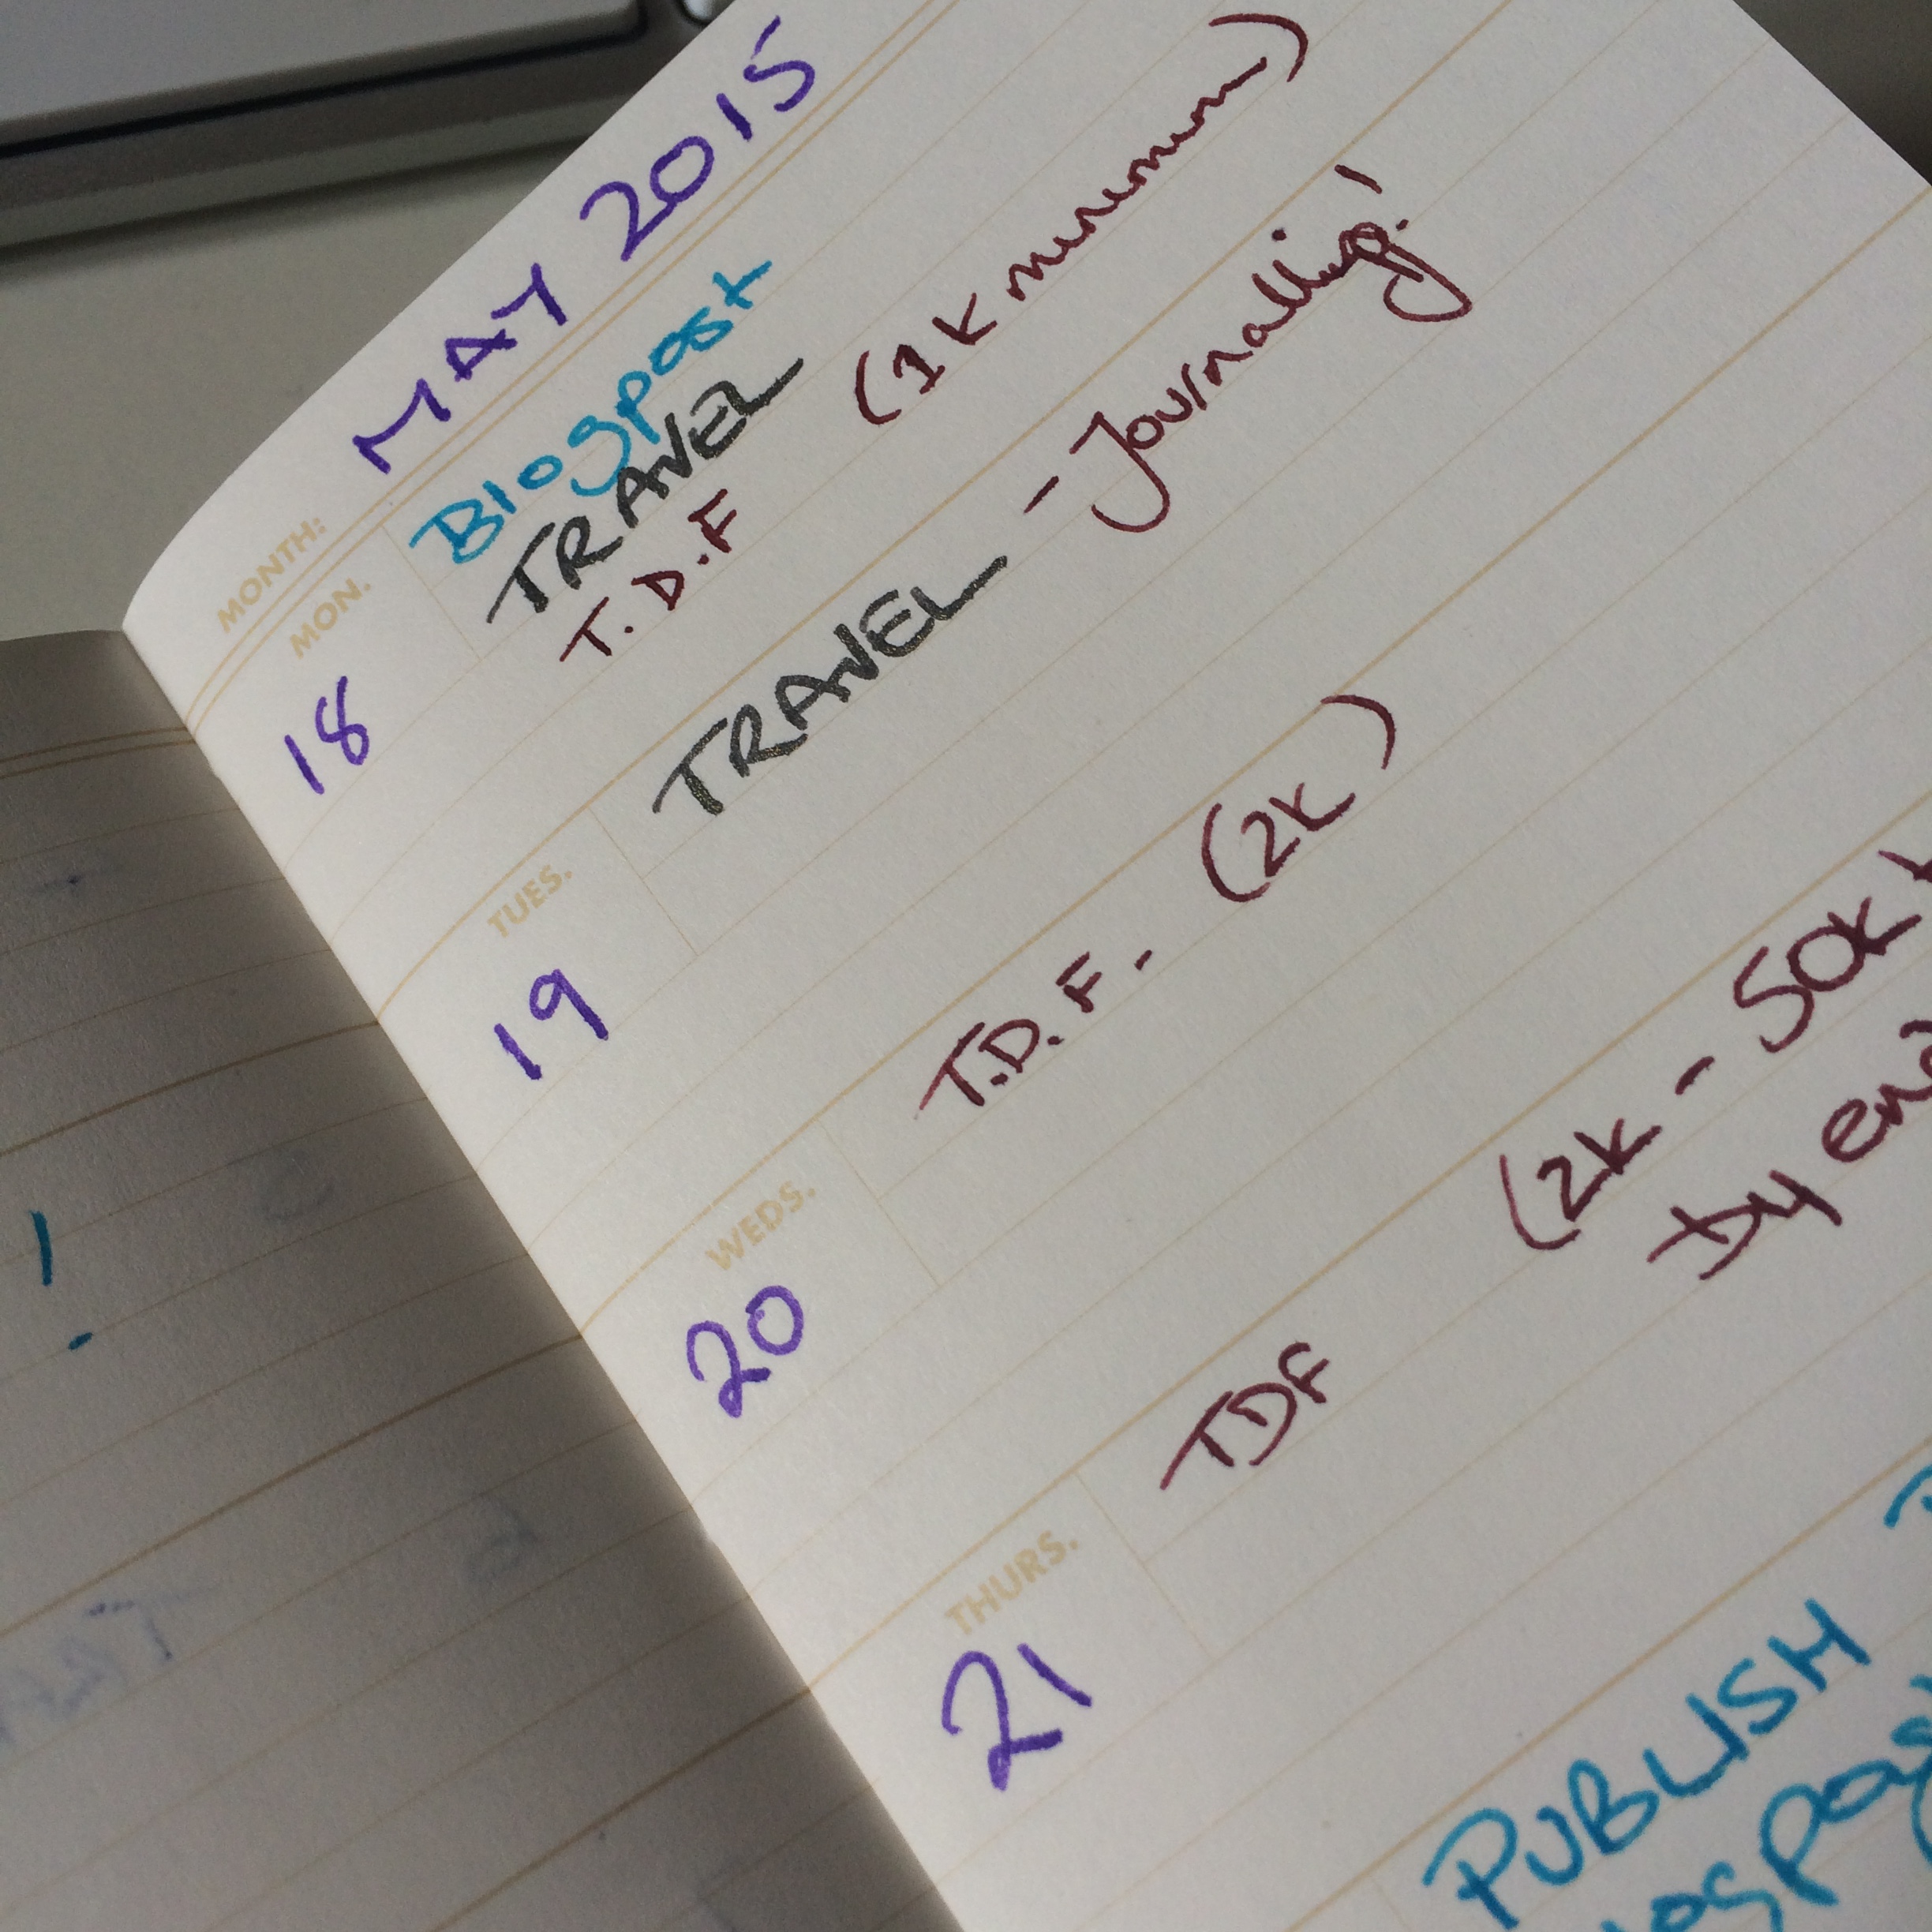 MONTH: MAY 2015
MON. Blogpost
TRAVEL
18 T.D.F (1K minimum)
TUES. TRAVEL - Journalling!
19
WEDS. T.D.F. - (2K)
20
THURS. TDF (2K - 50K
by end
21
PUBLISH
!